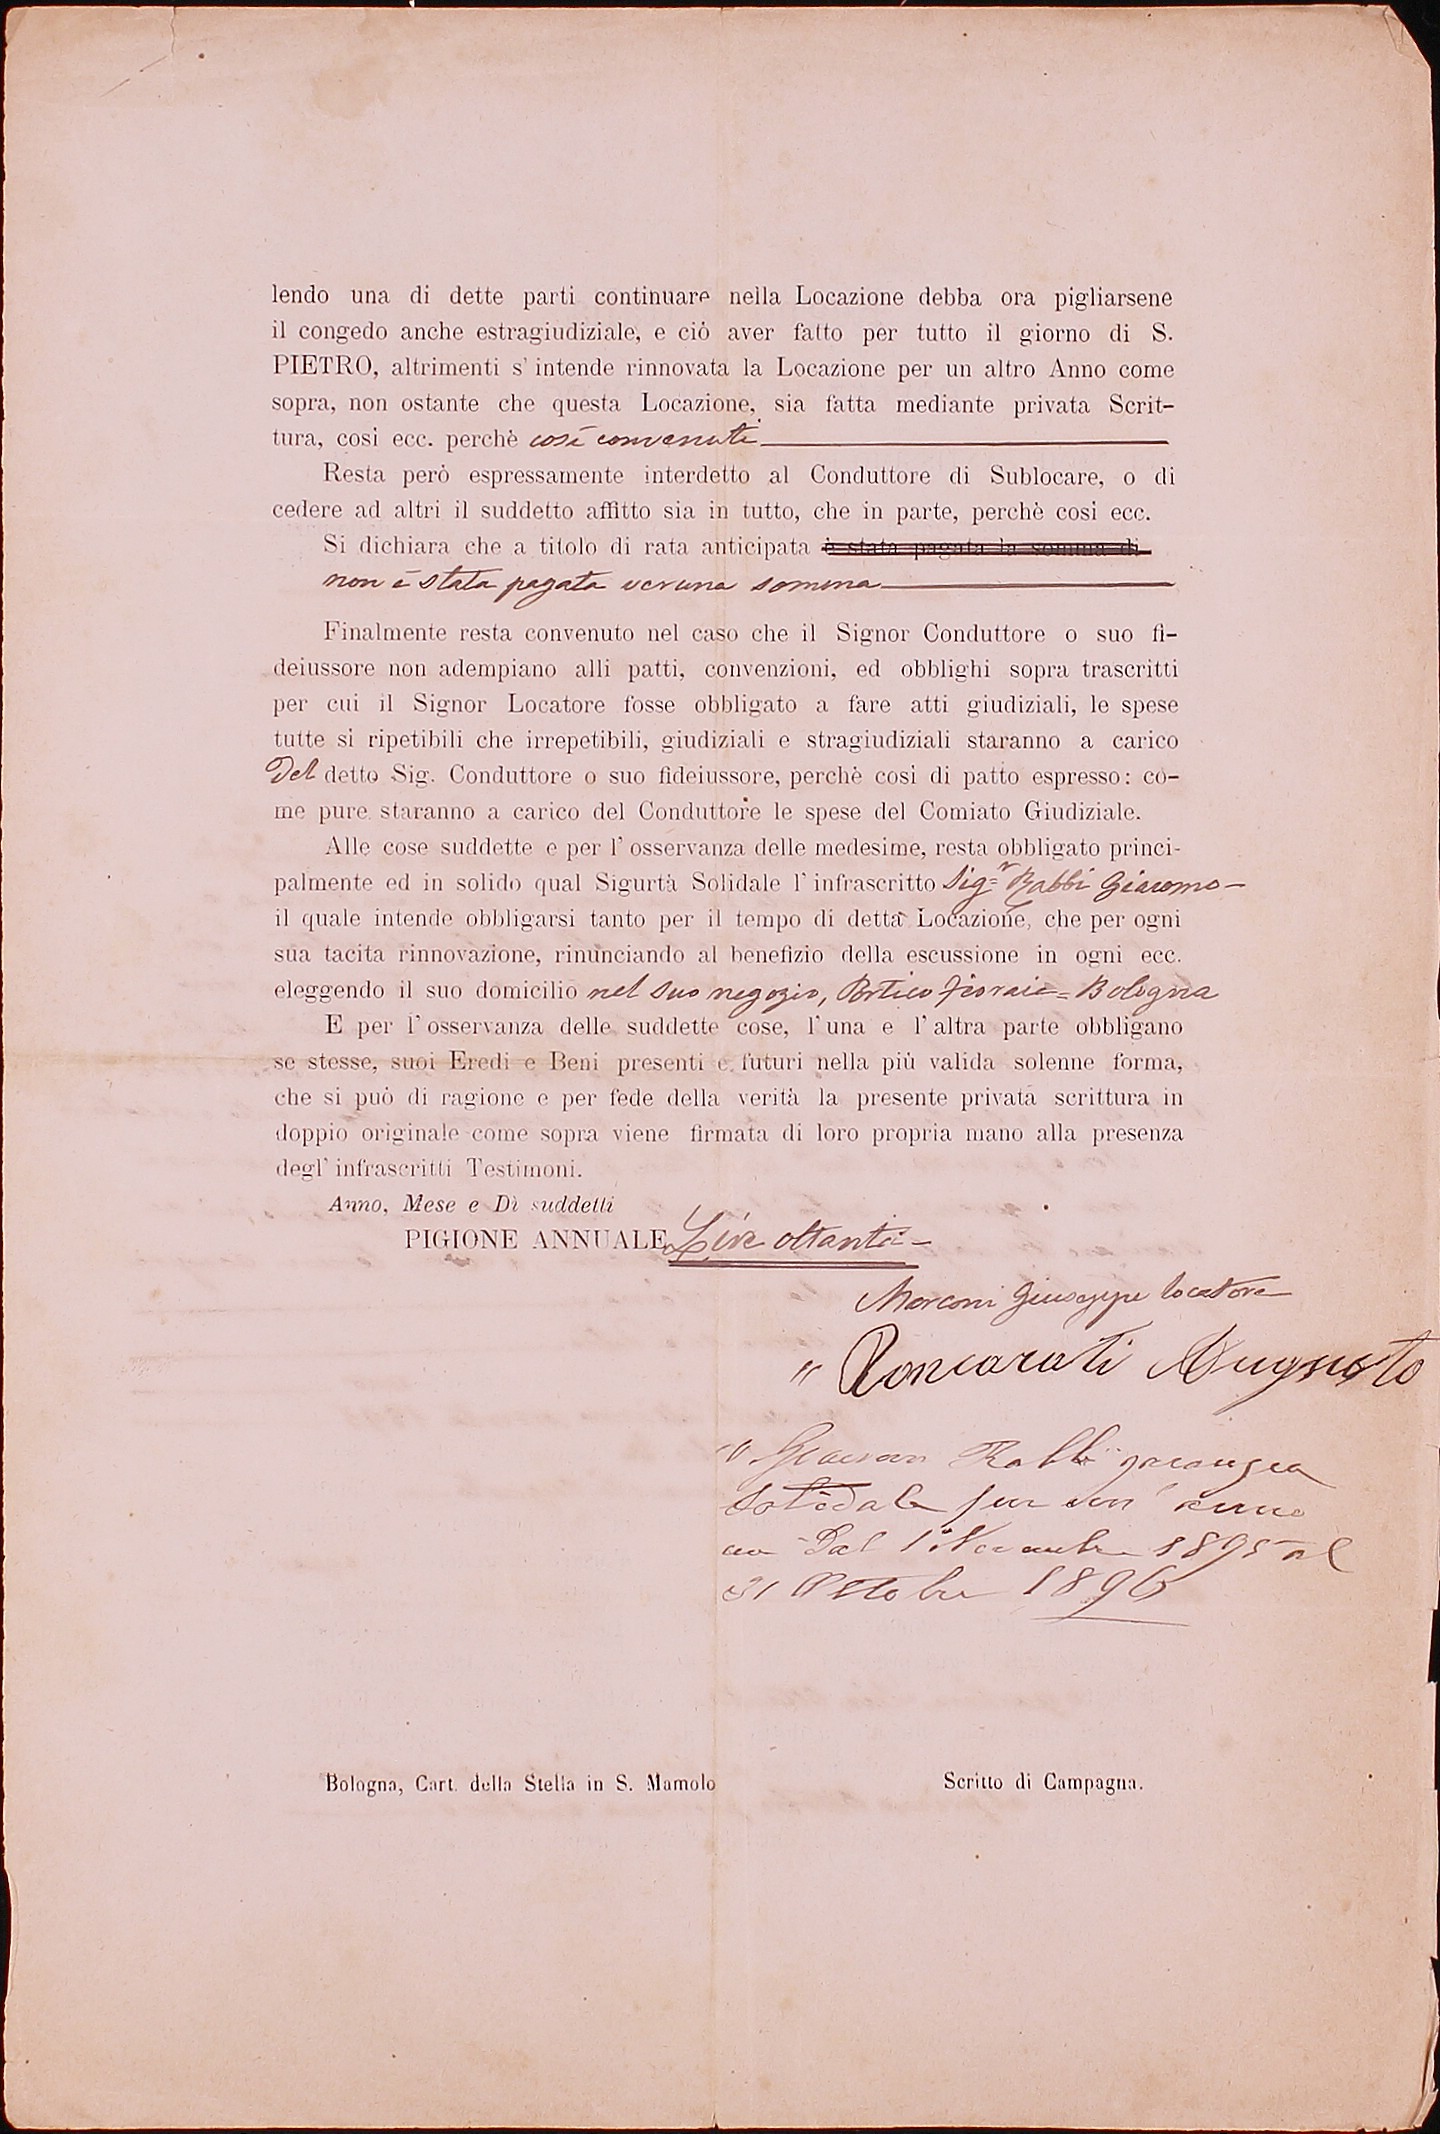 lendo una di dette parti continuare nella Locazione debba ora pigliarsene
il congedo anche estragiudiziale, e ciò aver fatto per tutto il giorno di S.
PIETRO, altrimenti s' intende rinnovata la Locazione per un altro Anno come
sopra, non ostante che questa Locazione, sia fatta mediante privata Scrit-
tura, così ecc. perchè così convenuti
Resta però espressamente interdetto al Conduttore di Sublocare, o di
cedere ad altri il suddetto affitto sia in tutto, che in parte, perchè così ecc.
Si dichiara che a titolo di rata anticipata è stata pagata la somma di
non è stata pagata veruna somma
Finalmente resta convenuto nel caso che il Signor Conduttore o suo fi-
deiussore non adempiano alli patti, convenzioni, ed obblighi sopra trascritti
per cui il Signor Locatore fosse obbligato a fare atti giudiziali, le spese
tutte si ripetibili che irrepetibili, giudiziali e stragiudiziali staranno a carico
Del detto Sig. Conduttore o suo fideiussore, perchè così di patto espresso: co-
me pure staranno a carico del Conduttore le spese del Comiato Giudiziale.
Alle cose suddette e per l' osservanza delle medesime, resta obbligato princi-
palmente ed in solido qual Sigurtà Solidale l' infrascritto Sig.r Rabbi Giacomo
il quale intende obbligarsi tanto per il tempo di detta Locazione, che per ogni
sua tacita rinnovazione, rinunciando al benefizio della escussione in ogni ecc.
eleggendo il suo domicilio nel suo negozio, Portico Fioraie = Bologna
E per l' osservanza delle suddette cose, l' una e l' altra parte obbligano
se stesse, suoi Eredi e Beni presenti e futuri nella più valida solenne forma,
che si può di ragione e per fede della verità la presente privata scrittura in
doppio originale come sopra viene firmata di loro propria mano alla presenza
degl' infrascritti Testimoni.
Anno, Mese e Dì suddetti
PIGIONE ANNUALE Lire ottanta
Marconi Giuseppe locatore
" Roncarati Augusto
" Rabbi
Solidale per un' anno
Dal 1° Novembre 1895 al
31 Ottobre 1896
Bologna, Cart. della Stella in S. Mamolo
Scritto di Campagna.